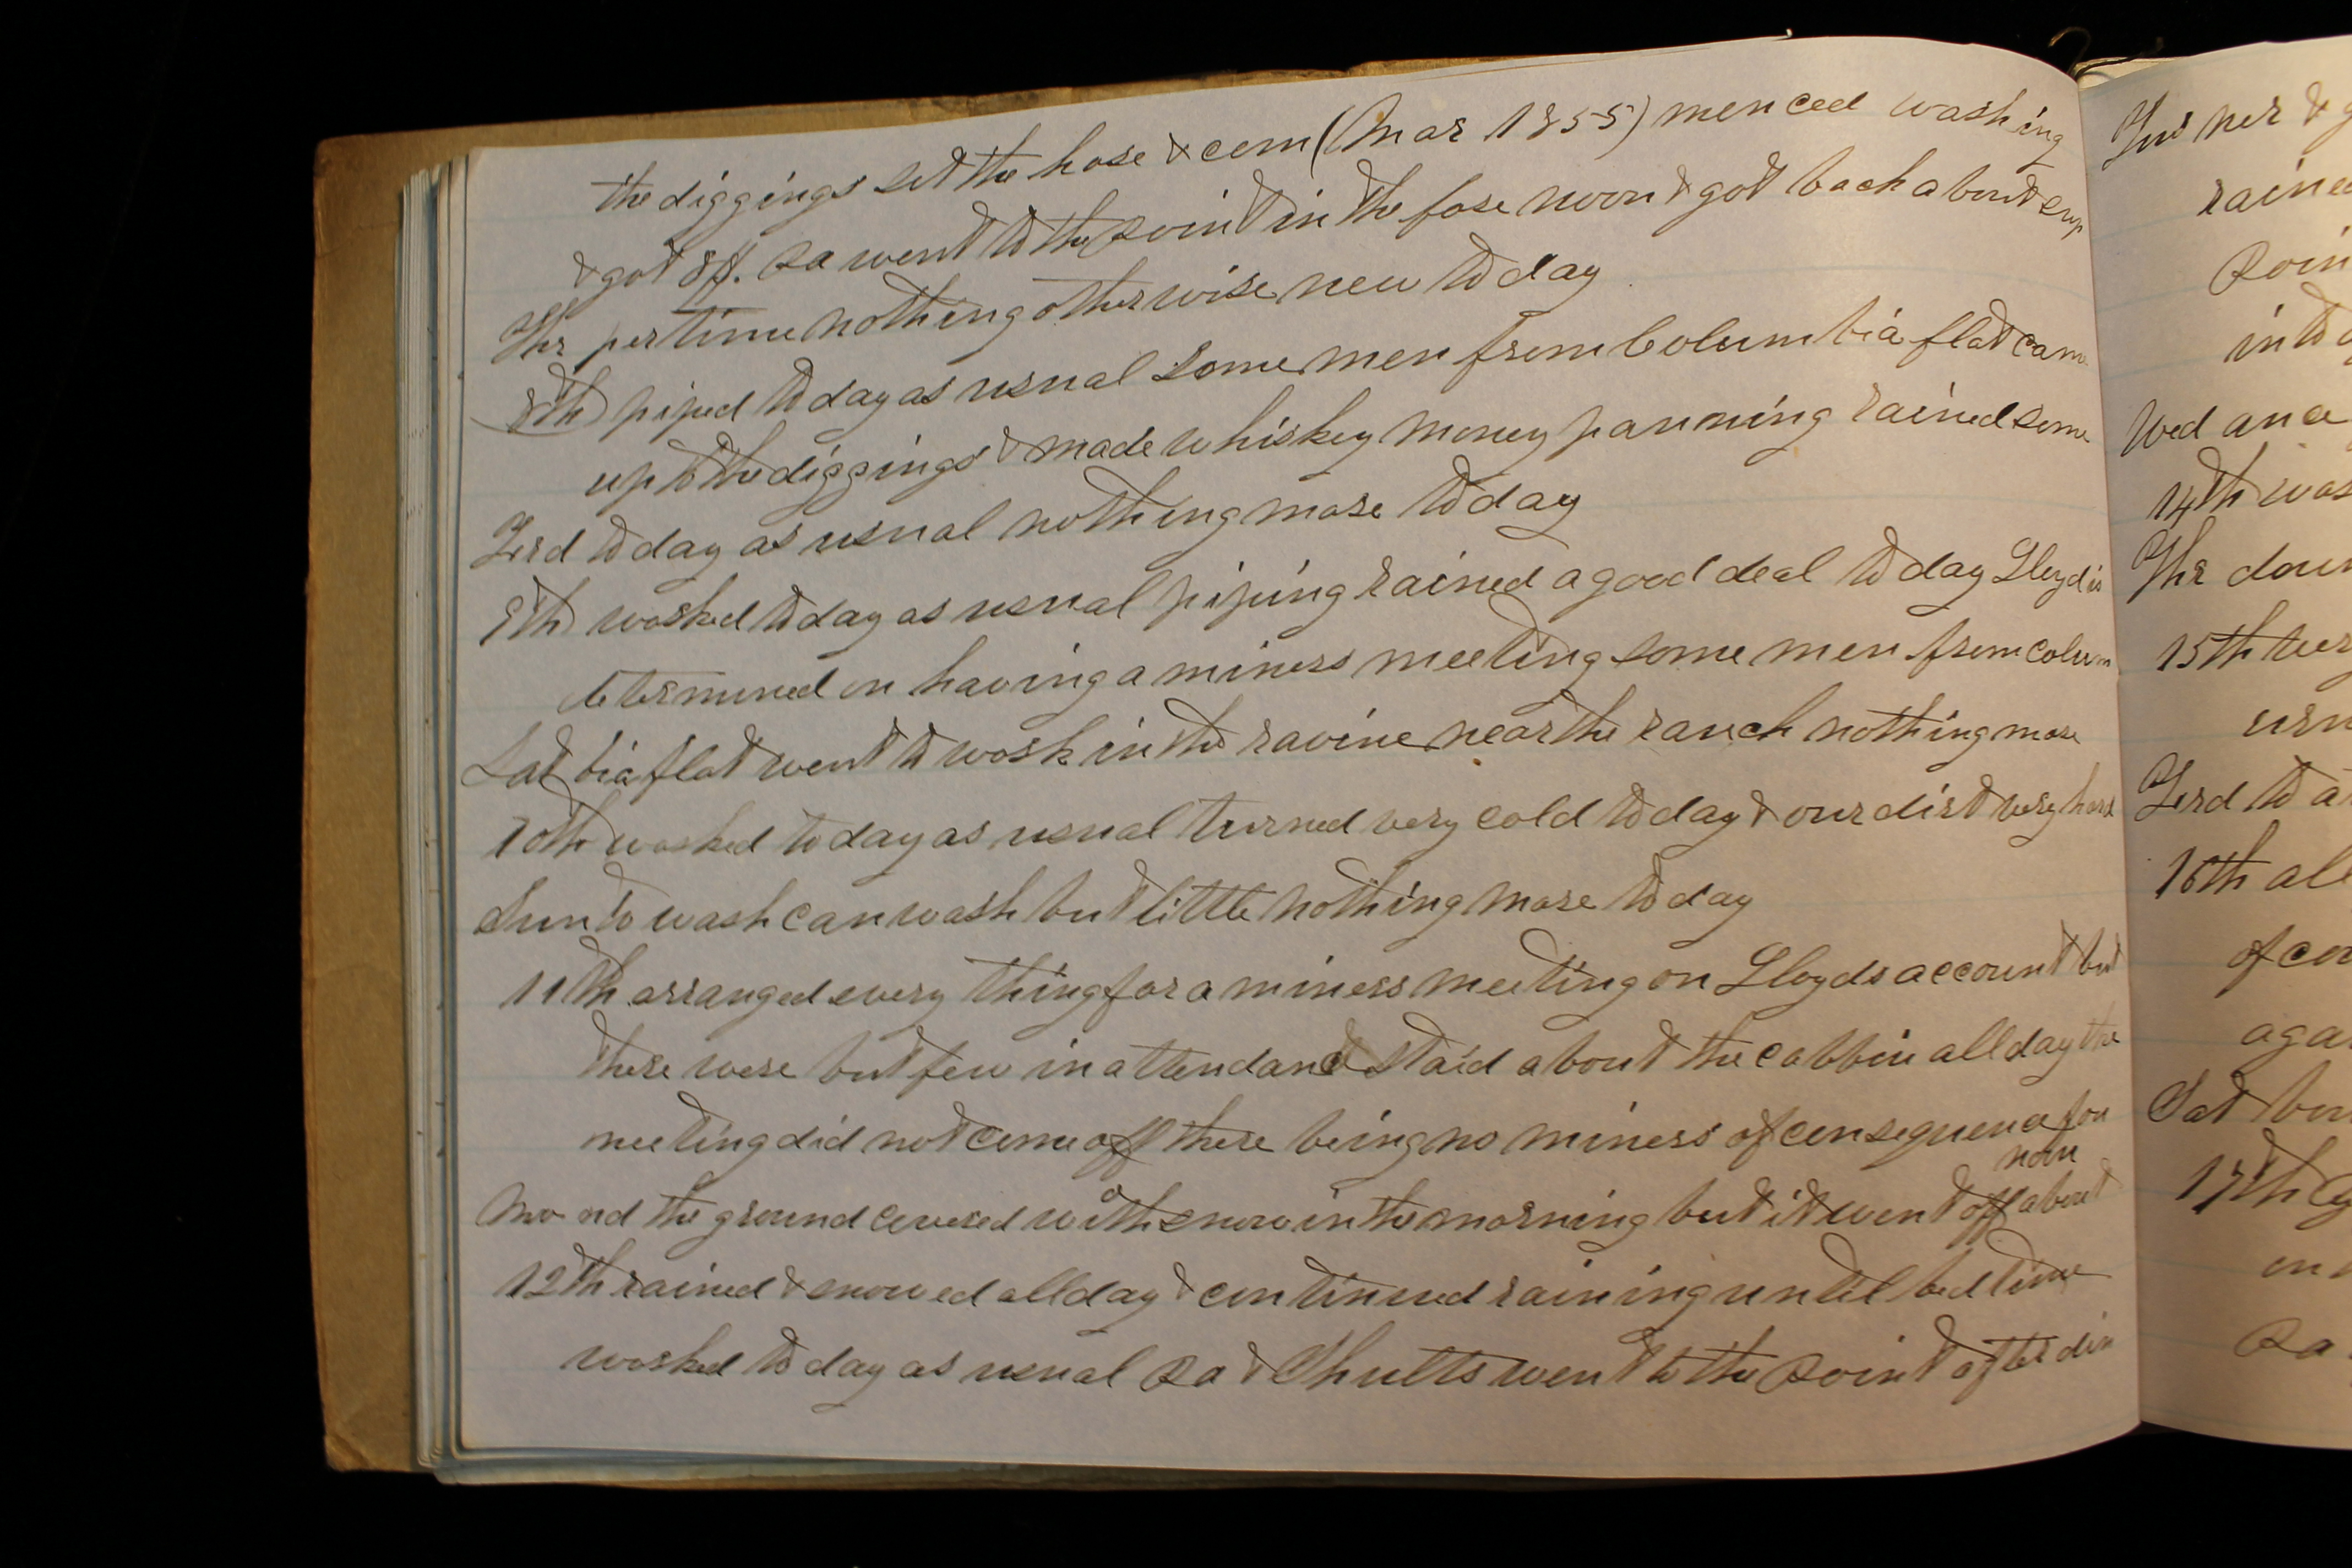 the diggings set the hose & com (Mar 1855) menced washing
& got 8 ft. Ra went to the Point in the fore noon & got back about sup
Thr per time nothing otherwise new to day
8th piped to day as usual some men from Columbia flat came
up to the diggings & made whiskey money panning rained some
Frid to day as usual nothing more to day
9th worked to day as usual piping rained a good deal to day Lloyd is
determined on having a miners meeting some men from colum
Sat bia flat went to work in the ravine near the ranch nothing more
10th worked to day as usual turned very cold to day & our dirt very hard
Sun to wash can wash but little nothing more to day
11th arranged every thing for a miners meeting on Lloyds account but
there were but few in attendance staid about the cabbin all day the
meeting did not come off there being no miners of consequence
Mo nd the ground covered with snow in the morning but it went off about noon
12th rained & snowed all day & continued raining until bed time
worked to day as usual Ra & Shults went to the Point after din
ner &
rained
Poin
in to
Wed an
14th was
Thr
15th
Frid to
16th al
of
aga
Sat
17th
on
Ra